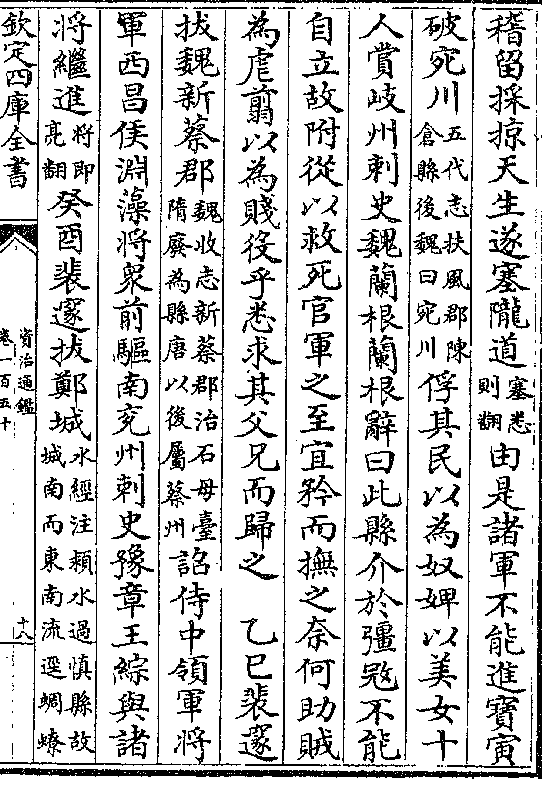 稽留採掠天生遂塞隴道塞悉則翻由是諸軍不能進寶寅
破宛川五代志扶風郡陳倉縣後魏曰宛川俘其民以為奴婢以美女十
人賞岐州刺史魏蘭根蘭根辭曰此縣介於彊㓂不能
自立故附從以救死官軍之至宜矜而撫之奈何助賊
為虐翦以為賤役乎悉求其父兄而歸之　乙巳裴邃
拔魏新蔡郡魏收志新蔡郡治石母臺隋廢為縣唐以後屬蔡州詔侍中領軍將
軍西昌侯淵藻將衆前驅南兖州刺史豫章王綜與諸
將繼進將即亮翻癸酉裴邃拔鄭城水經注潁水過慎縣故城南而東南流逕蜩蟟
欽定四庫全書
資治通鑑
卷一百五十
十八